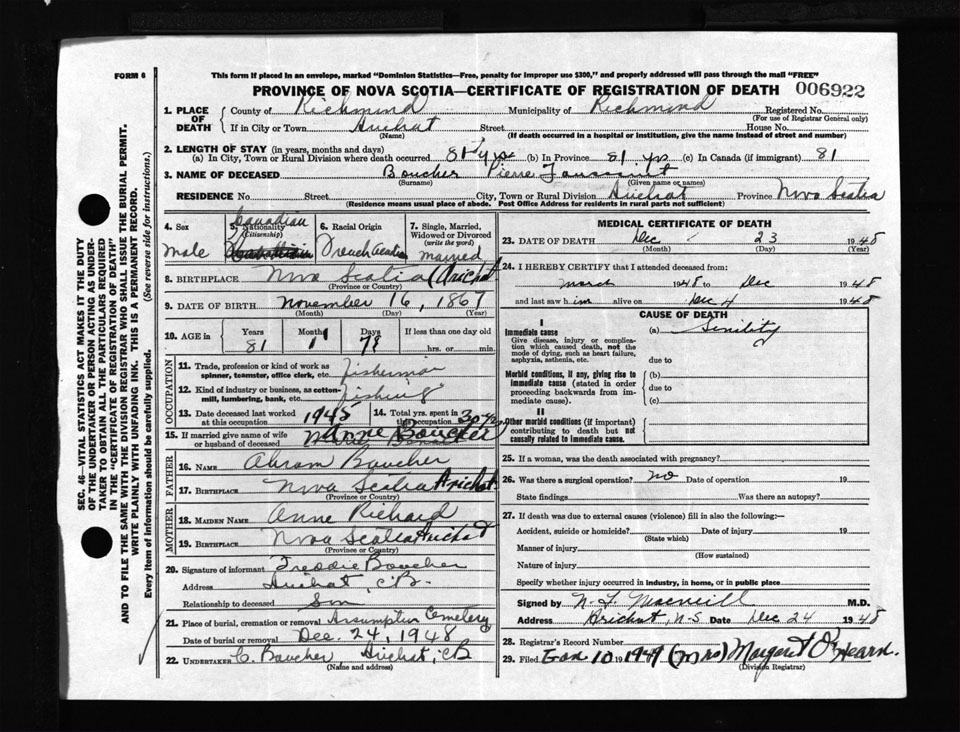 FORM 6
This form if placed in an envelope, marked "Dominion Statistics—Free, penalty for improper use $300," and properly addressed will pass through the mail "FREE"
PROVINCE OF NOVA SCOTIA—CERTIFICATE OF REGISTRATION OF DEATH 006922
1. PLACE OF DEATH
County of Richmond Municipality of Richmond Registered No.
(For use of Registrar General only)
If in City or Town Arichat Street House No.
(Name) (If death occurred in a hospital or institution, give the name instead of street and number)
2. LENGTH OF STAY (in years, months and days)
(a) In City, Town or Rural Division where death occurred 81 yrs (b) In Province 81 yrs (c) In Canada (if immigrant) 81
3. NAME OF DECEASED Boucher Pierre Toussaint
(Surname) (Given name or names)
RESIDENCE No. Street City, Town or Rural Division Arichat Province Nova Scotia
(Residence means usual place of abode. Post Office Address for residents in rural parts not sufficient)
4. Sex
Male
5. Nationality
(Citizenship)
Canadian
6. Racial Origin
French
7. Single, Married, Widowed or Divorced
(write the word)
married
8. BIRTHPLACE Nova Scotia (Arichat
(Province or Country)
9. DATE OF BIRTH November 16, 1867
(Month) (Day) (Year)
10. AGE in
Years Months Days If less than one day old
81 1 7 hrs. or min.
OCCUPATION
11. Trade, profession or kind of work as spinner, teamster, office clerk, etc. fisherman
12. Kind of industry or business, as cotton-mill, lumbering, bank, etc. fishing
13. Date deceased last worked at this occupation 1945
14. Total yrs. spent in this occupation 30 yrs
15. If married give name of wife or husband of deceased Anne Boucher
FATHER
16. NAME Abram Boucher
17. BIRTHPLACE Nova Scotia Arichat
(Province or Country)
MOTHER
18. MAIDEN NAME Anne Richard
19. BIRTHPLACE Nova Scotia Arichat
(Province or Country)
20. Signature of informant Freddie Boucher
Address Arichat, C.B.
Relationship to deceased Son
21. Place of burial, cremation or removal Assumption Cemetery
Date of burial or removal Dec. 24, 1948
22. UNDERTAKER C. Boucher Arichat, CB
(Name and address)
MEDICAL CERTIFICATE OF DEATH
23. DATE OF DEATH Dec 23 1948
(Month) (Day) (Year)
24. I HEREBY CERTIFY that I attended deceased from:
March 1948 to Dec 1948
and last saw him alive on Dec 4 1948
CAUSE OF DEATH
I
Immediate cause
Give disease, injury or complication which caused death, not the mode of dying, such as heart failure, asphyxia, asthenia, etc.
(a) Senility
due to
Morbid conditions, if any, giving rise to immediate cause (stated in order proceeding backwards from immediate cause)
(b)
due to
(c)
II
Other morbid conditions (if important) contributing to death but not causally related to immediate cause.
25. If a woman, was the death associated with pregnancy?
26. Was there a surgical operation? no Date of operation 19
State findings Was there an autopsy?
27. If death was due to external causes (violence) fill in also the following:—
Accident, suicide or homicide? Date of injury 19
(State which)
Manner of injury
(How sustained)
Nature of injury
Specify whether injury occurred in industry, in home, or in public place
Signed by M.D.
Address Arichat, N.S. Date Dec 24 1948
28. Registrar's Record Number
29. Filed Jan 10 1949 (Mrs) Margaret O'Hearn.
(Division Registrar)
SEC. 46—VITAL STATISTICS ACT MAKES IT THE DUTY
OF THE UNDERTAKER OR PERSON ACTING AS UNDER-
TAKER TO OBTAIN ALL THE PARTICULARS REQUIRED
IN THE "CERTIFICATE OF REGISTRATION OF DEATH"
AND TO FILE THE SAME WITH THE DIVISION REGISTRAR WHO SHALL ISSUE THE BURIAL PERMIT.
WRITE PLAINLY WITH UNFADING INK. THIS IS A PERMANENT RECORD.
Every item of information should be carefully supplied. (See reverse side for instructions.)